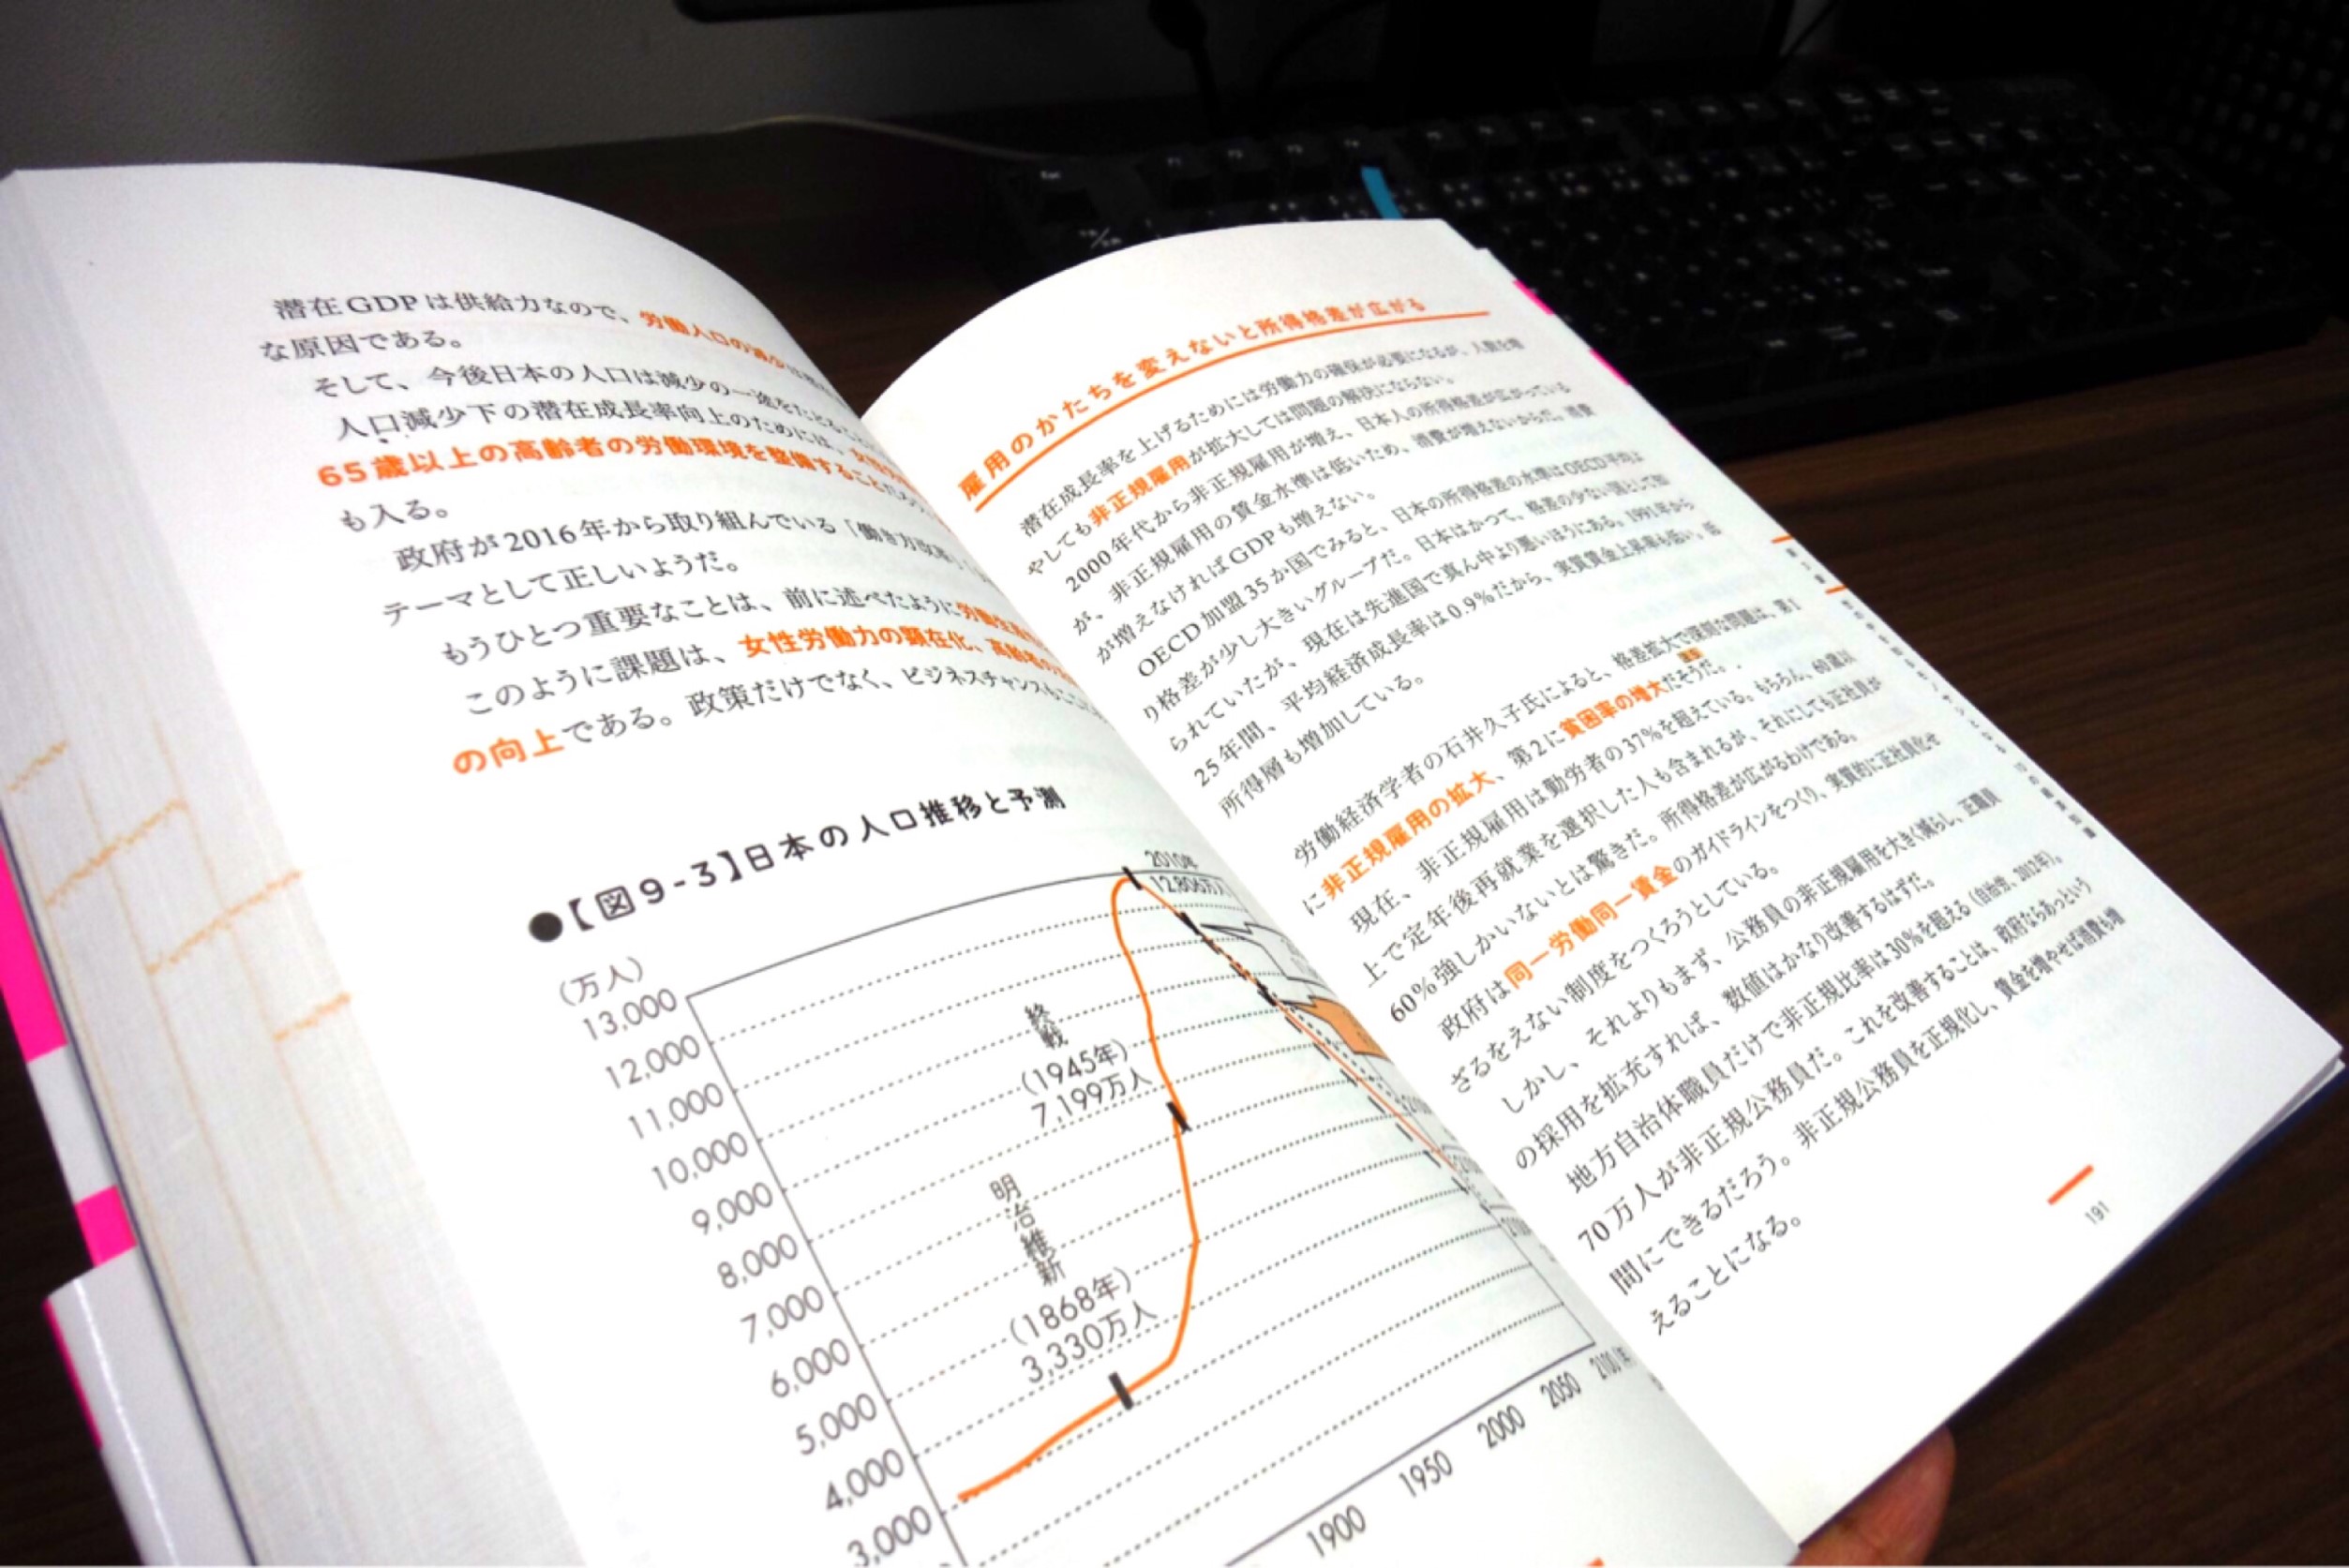 潜在GDPは供給力なので、労働人口の減少
な原因である。
そして、今後日本の人口は減少の一途をたどること
人口減少下の潜在成長率向上のためには、女性
65歳以上の高齢者の労働環境を整備すること
も入る。
政府が2016年から取り組んでいる「働き方改革」
テーマとして正しいようだ。
もうひとつ重要なことは、前に述べたように労働生産
このように課題は、女性労働力の顕在化、高齢者の
の向上である。政策だけでなく、ビジネスチャンスもここ
●【図9-3】日本の人口推移と予測
(万人)
13,000
12,000
11,000
10,000
9,000
8,000
7,000
6,000
5,000
4,000
3,000
2010年
12,806万人
終戦
(1945年)
7,199万人
明治維新
(1868年)
3,330万人
1900
1950
2000
2050
2100年
雇用のかたちを変えないと所得格差が広がる
潜在成長率を上げるためには労働力の確保が必要になるが、人数を増
やしても非正規雇用が拡大しては問題の解決にならない。
2000年代から非正規雇用が増え、日本人の所得格差が広がっている
が、非正規雇用の賃金水準は低いため、消費が増えないからだ。消費
が増えなければGDPも増えない。
OECD加盟35か国でみると、日本の所得格差の水準はOECD平均よ
り格差が少し大きいグループだ。日本はかつて、格差の少ない国として知
られていたが、現在は先進国で真ん中より悪いほうにある。1991年から
25年間、平均経済成長率は0.9%だから、実質賃金上昇率も低い。低
所得層も増加している。
労働経済学者の石井久子氏によると、格差拡大で深刻な問題は、第1
に非正規雇用の拡大、第2に貧困率の増大だそうだ。
現在、非正規雇用は勤労者の37%を超えている。もちろん、60歳以
上で定年後再就業を選択した人も含まれるが、それにしても正社員が
60%強しかいないとは驚きだ。所得格差が広がるわけである。
政府は同一労働同一賃金のガイドラインをつくり、実質的に正社員化せ
ざるをえない制度をつくろうとしている。
しかし、それよりもまず、公務員の非正規雇用を大きく減らし、正職員
の採用を拡充すれば、数値はかなり改善するはずだ。
地方自治体職員だけで非正規比率は30%を超える（自治労、2012年）。
70万人が非正規公務員だ。これを改善することは、政府ならあっという
間にできるだろう。非正規公務員を正規化し、賃金を増やせば消費も増
えることになる。
191